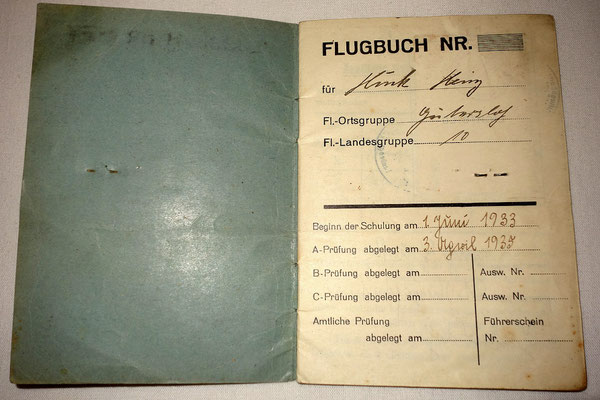 FLUGBUCH NR.
für Klink Heinz
Fl.-Ortsgruppe Gütersloh
Fl.-Landesgruppe 10
Beginn der Schulung am 1. Juni 1933
A-Prüfung abgelegt am 3. April 1935
B-Prüfung abgelegt am Ausw. Nr.
C-Prüfung abgelegt am Ausw. Nr.
Amtliche Prüfung Führerschein
abgelegt am Nr.